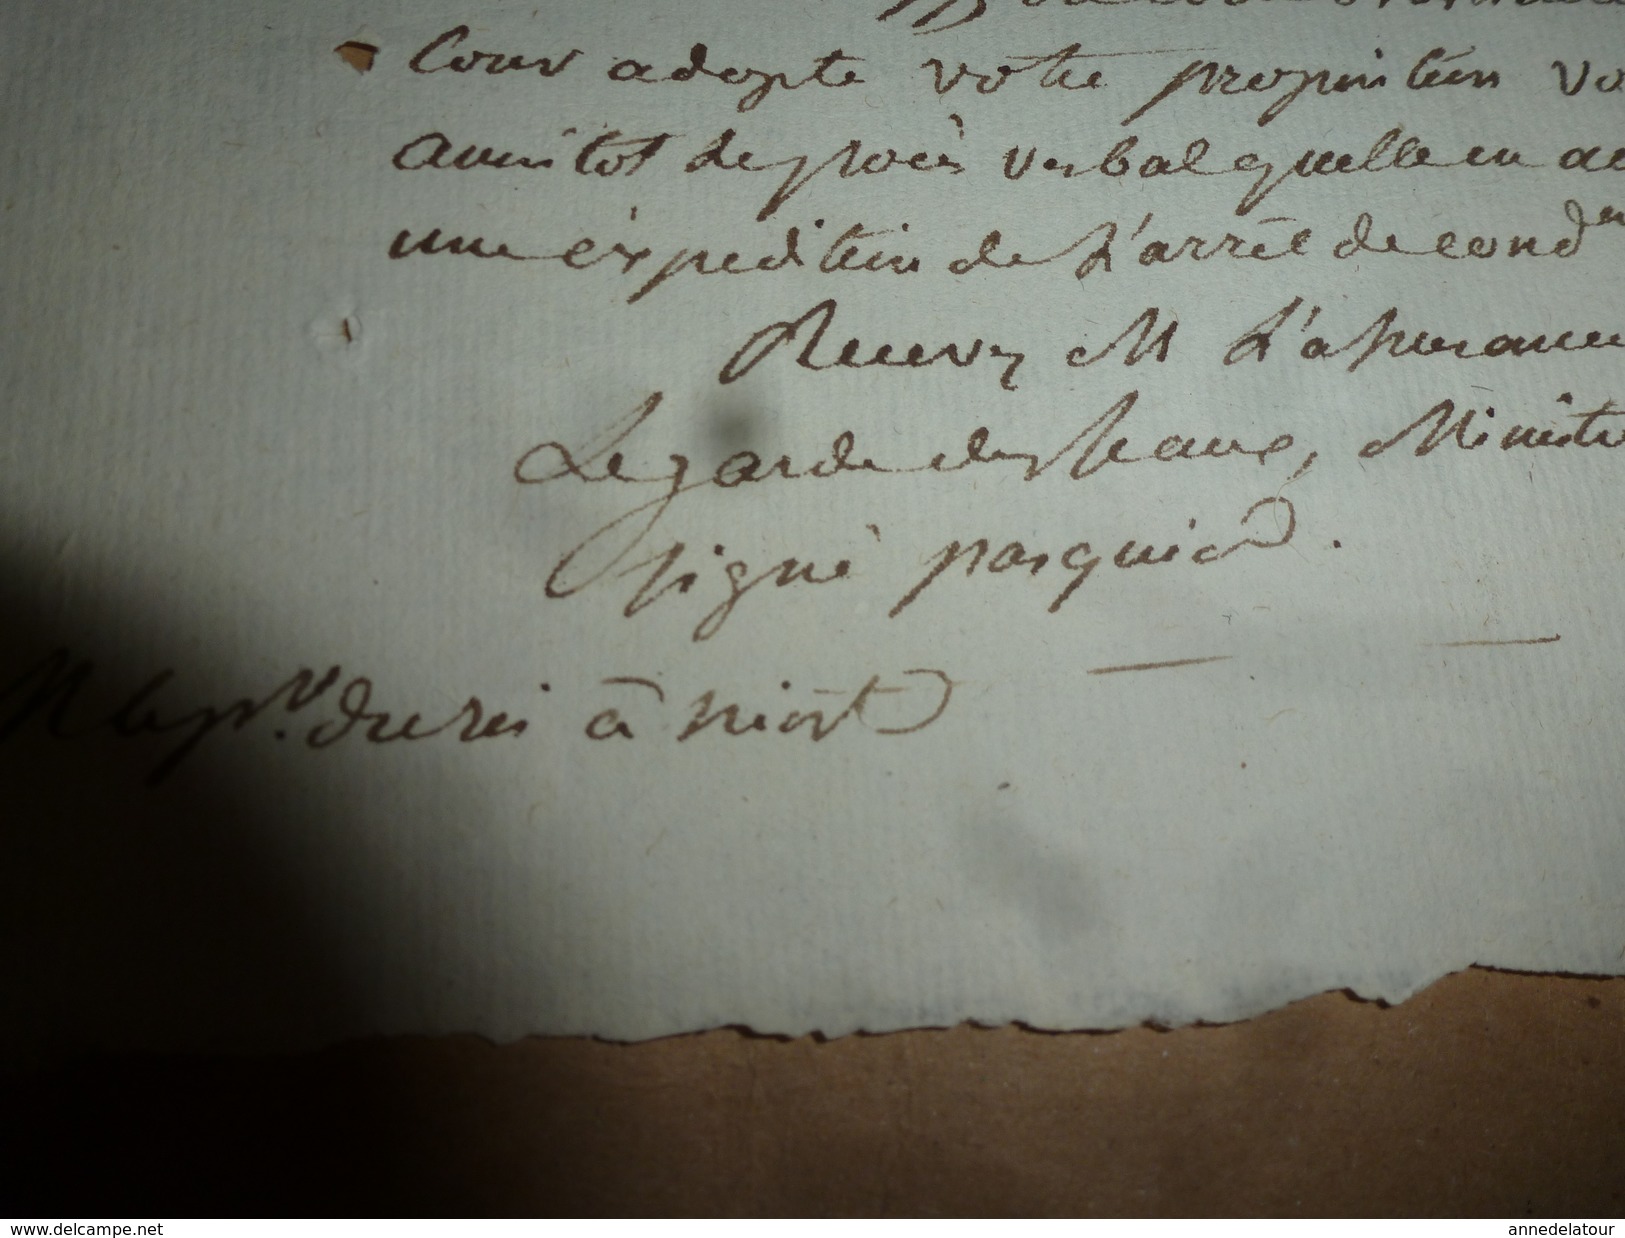 Cour adopte votre proposition vo
aussitot le procès verbal quelle en au
une expedition de L'arrêt de cond en
Recevez M L'assurance
Le garde des sceaux, Ministre
signé pasquier.
M le pr. du roi à niort
www.delcampe.net
annedelatour